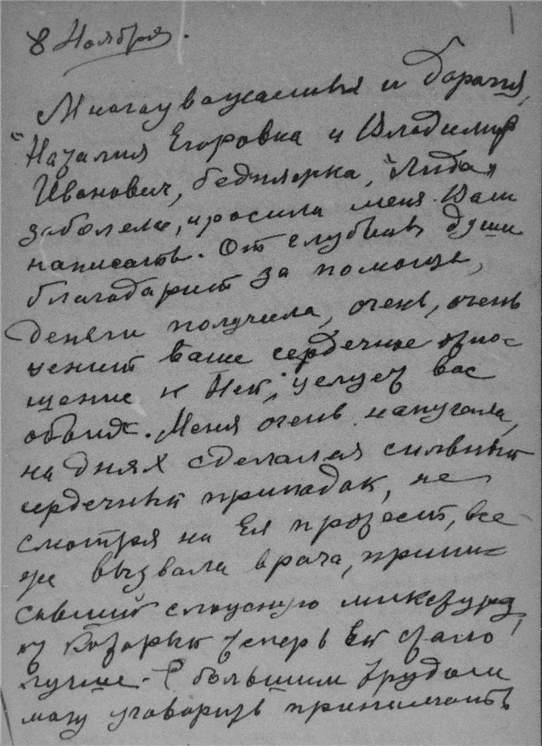 8 Ноября.
Многоуважаемыя и дорогия,
"Наталия Егоровна и Владимир
Иванович, бедняжка, "Лида"
заболела, просила меня Вам
написать. От глубины души
благодарит за помощь,
деньги получила, очень, очень
ценит Ваше сердечное отно-
шение к Ней, целует вас
обоих. Меня очень напугала,
на днях сделался сильный
сердечный припадок, не
смотря на Ея протест, все
же вызвала врача, припи-
савший микстуру,
от Которой теперь Ей стало
лучше. С большим трудом
могу уговорить принимать